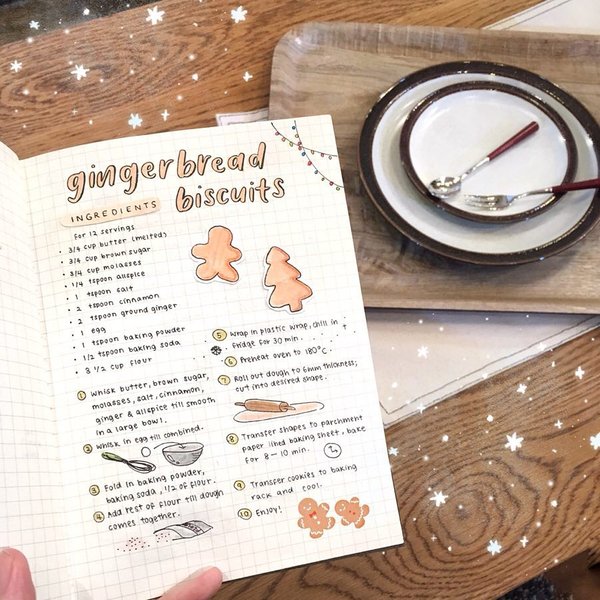 gingerbread
biscuits
INGREDIENTS
for 12 servings
• 3/4 cup butter (melted)
• 3/4 cup brown sugar
• 3/4 cup molasses
• 1/4 tspoon allspice
• 1 tspoon salt
• 2 tspoon cinnamon
• 2 tspoon ground ginger
• 1 egg
• 1 tspoon baking powder
• 1/2 tspoon baking soda
• 3 1/2 cup flour
1 whisk butter, brown sugar,
molasses, salt, cinnamon,
ginger & allspice till smooth
in a large bowl.
2 whisk in egg till combined.
3 Fold in baking powder,
baking soda, 1/2 of flour.
4 Add rest of flour till dough
comes together.
5 Wrap in plastic wrap, chill in
fridge for 30 min.
6 Preheat oven to 180°C.
7 Roll out dough to 6mm thickness;
cut into desired shape.
8 Transfer shapes to parchment
paper lined baking sheet, bake
for 8-10 min.
9 Transfer cookies to baking
rack and cool.
10 Enjoy!